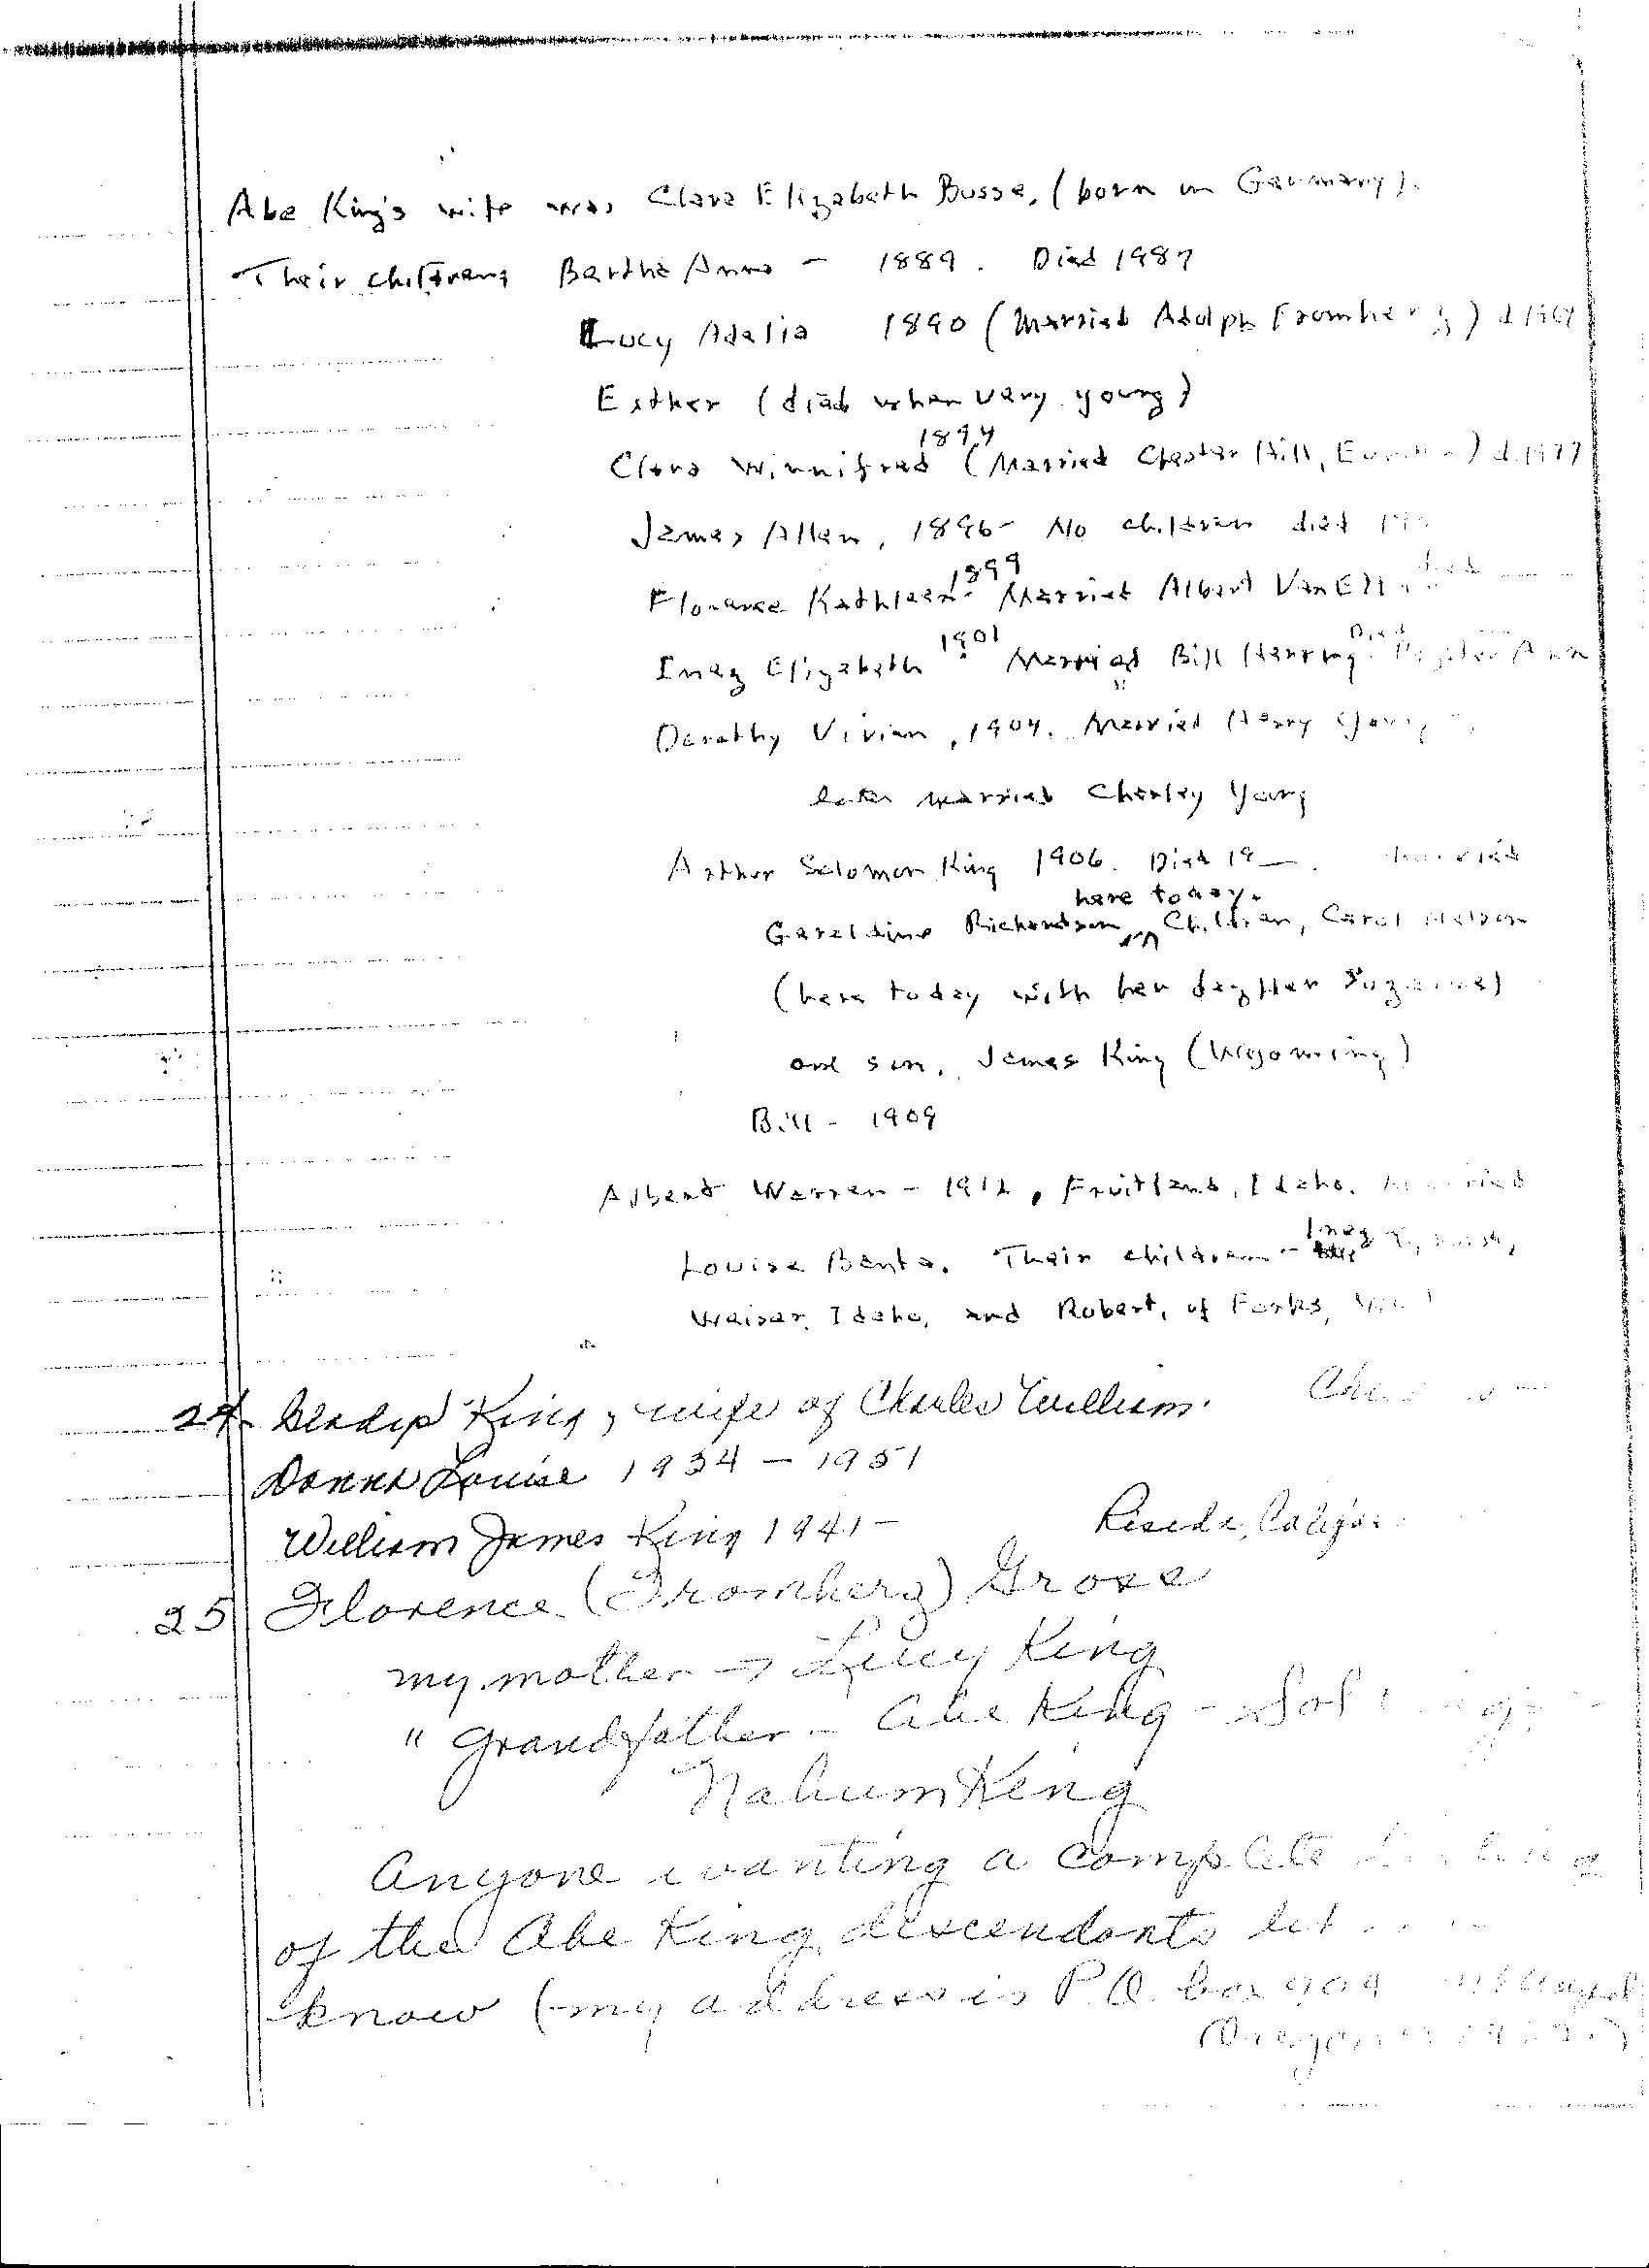 Abe King's wife was Clara Elizabeth Busse, (born in Germany).
Their children; Bertha Anna - 1889. Died 1987
Lucy Adalia 1890 (Married Adolph Fromherz) d
Esther (died when very young)
1894
Clara Winnifred (Married Chester Hill,
James Allen, 1896 - No children died
1899
Florence Kathleen - Married Albert Van
1901 Died
Inez Elizabeth Married Bill Ann
Dorothy Vivian, 1904. Married Harry
later married Charley Young
Arthur Solomon King 1906. Died 19__. Married
here today.
Gereldine Richardson, Children, Carol
(here today with her dayhter Suzanne)
and son, James King (Wyomming)
Bill - 1909
Albert Warren - 1912, Fruitland, Idaho. Married
Inez
Louise Bente. Their children -
Weiser, Idaho, and Robert, of Forks,
24 Gladys King, wife of Charles William.
Donna Louise 1934 - 1951
William James King 1941 - Reseda, Calif
25 Florence (Fromherz) Grove
my mother → Lucy King
" Grandfather - Abe King - Sol
Nahum King
Anyone wanting a complete
of the Abe King descendants let
know (my address is P.O. box 909